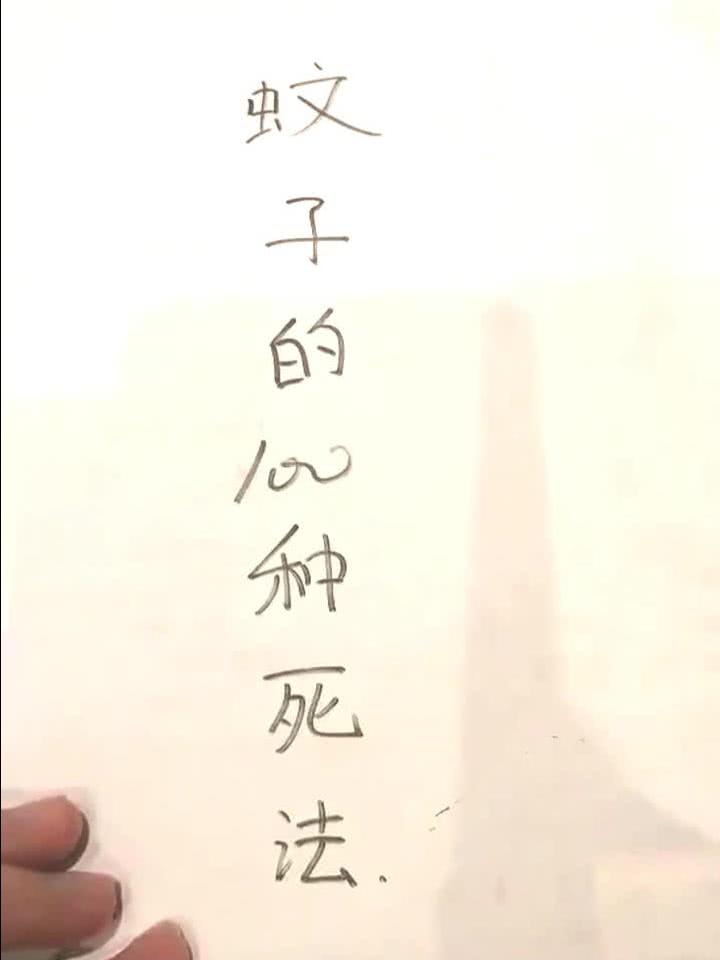 蚊子的100种死法.